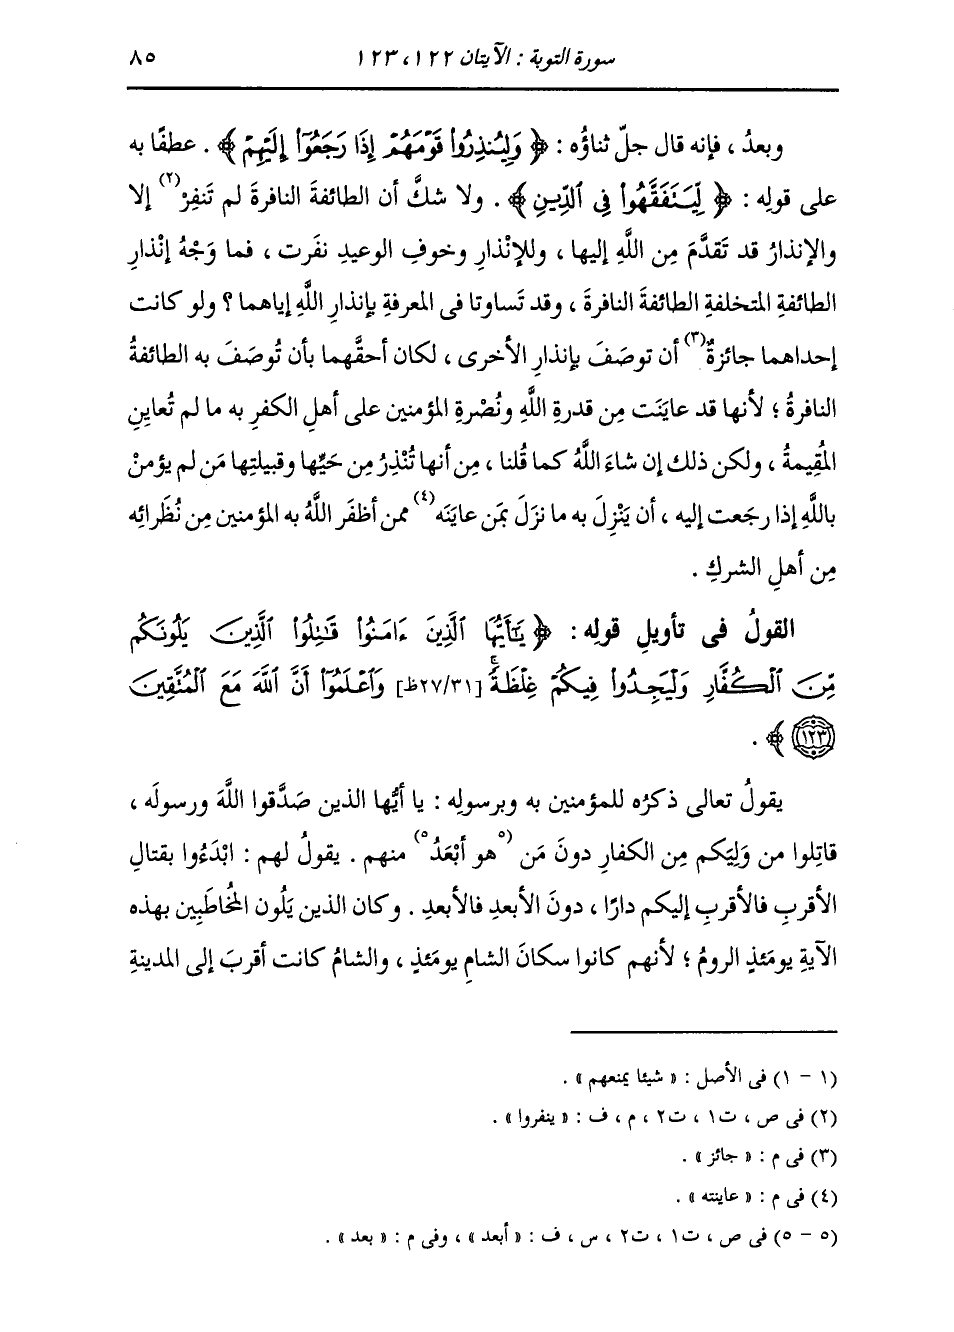 سورة التوبة : الآيتان ١٢٢ ، ١٢٣ ٨٥
وبعدُ ، فإنه قال جلّ ثناؤُه : ﴿ وَلِيُنذِرُوا۟ قَوْمَهُمْ إِذَا رَجَعُوٓا۟ إِلَيْهِمْ ﴾ . عطفًا به
على قولِه : ﴿ لِّيَتَفَقَّهُوا۟ فِى ٱلدِّينِ ﴾ . ولا شكَّ أن الطائفةَ النافرةَ لم تَنفِرْ(٢) إلا
والإنذارُ قد تَقدَّمَ مِن اللَّهِ إليها ، وللإنْذارِ وخوفِ الوعيدِ نفَرت ، فما وَجْهُ إنْذارِ
الطائفةِ المتخلفةِ الطائفةَ النافرةَ ، وقد تَساوتا فى المعرفةِ بإنذارِ اللَّهِ إياهما ؟ ولو كانت
إحداهما جائزةٌ(٣) أن توصَفَ بإنذارِ الأخرى ، لكان أحقَّهما بأن تُوصَفَ به الطائفةُ
النافرةُ ؛ لأنها قد عايَنَت مِن قدرةِ اللَّهِ ونُصْرةِ المؤمنين على أهلِ الكفرِ به ما لم تُعايِنِ
المُقِيمةُ ، ولكن ذلك إن شاءَ اللَّهُ كما قُلنا ، مِن أنها تُنْذِرُ مِن حَيِّها وقبيلتِها مَن لم يؤمنْ
باللَّهِ إذا رجَعت إليه ، أن يَنْزِلَ به ما نزَلَ بمَن عايَنَه(٤) ممن أظفَر اللَّهُ به المؤمنين مِن نُظَرائِه
مِن أهلِ الشركِ .
القولُ فى تأويلِ قولِه : ﴿ يَٰٓأَيُّهَا ٱلَّذِينَ ءَامَنُوا۟ قَٰتِلُوا۟ ٱلَّذِينَ يَلُونَكُم
مِّنَ ٱلْكُفَّارِ وَلْيَجِدُوا۟ فِيكُمْ غِلْظَةً ۚ [٢٧/٣١ظ] وَٱعْلَمُوٓا۟ أَنَّ ٱللَّهَ مَعَ ٱلْمُتَّقِينَ
(١٢٣) ﴾ .
يقولُ تعالى ذكرُه للمؤمنين به وبرسولِه : يا أيُّها الذين صَدَّقوا اللَّهَ ورسولَه ،
قاتِلوا من وَلِيَكم مِن الكفارِ دونَ مَن (٥هو أبْعَدُ٥) منهم . يقولُ لهم : ابْدَءُوا بقتالِ
الأقربِ فالأقربِ إليكم دارًا ، دونَ الأبعدِ فالأبعدِ . وكان الذين يَلُون المُخاطَبِين بهذه
الآيةِ يومَئذٍ الرومُ ؛ لأنهم كانوا سكانَ الشامِ يومَئذٍ ، والشامُ كانت أقربَ إلى المدينةِ
(١ - ١) فى الأصل : « شيئا يمنعهم » .
(٢) فى ص ، ت١ ، ت٢ ، م ، ف : « ينفروا » .
(٣) فى م : « جائز » .
(٤) فى م : « عاينته » .
(٥ - ٥) فى ص ، ت١ ، ت٢ ، س ، ف : « أبعد » ، وفى م : « بعد » .